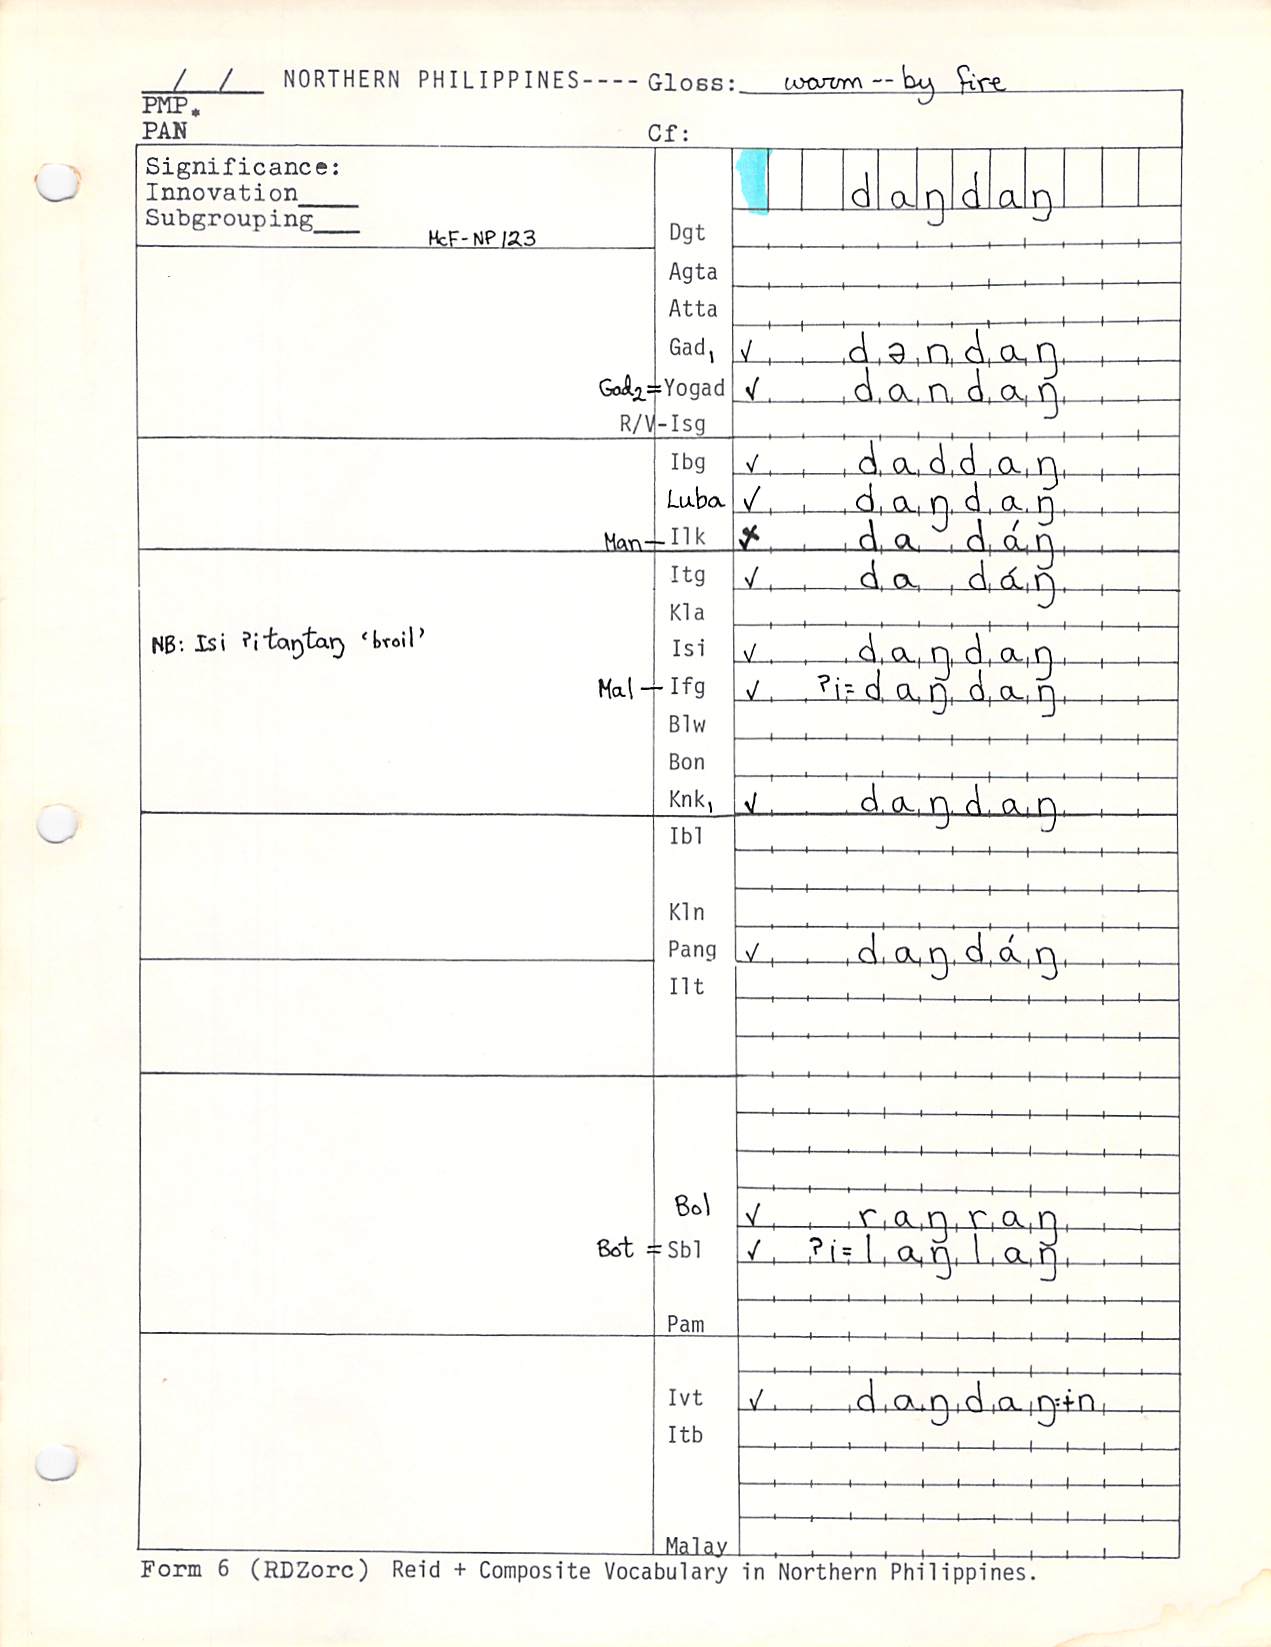 / / NORTHERN PHILIPPINES---- Gloss: warm -- by fire
PMP *
PAN Cf:
Significance:
Innovation
Subgrouping
daŋdaŋ
McF-NP 123
Dgt
Agta
Atta
Gad₁ ✓ dəndaŋ
Gad₂ = Yogad ✓ dandaŋ
R/V-Isg
Ibg ✓ daddaŋ
Luba ✓ daŋdaŋ
Man — Ilk da dáŋ
Itg ✓ da dáŋ
Kla
NB: Isi ʔitaŋtaŋ ‘broil’
Isi ✓ daŋdaŋ
Mal — Ifg ✓ ʔi=daŋdaŋ
Blw
Bon
Knk₁ ✓ daŋdaŋ
Ibl
Kln
Pang ✓ daŋdáŋ
Ilt
Bol ✓ raŋraŋ
Bot = Sbl ✓ ʔi=laŋlaŋ
Pam
Ivt ✓ daŋdaŋ=ɨn
Itb
Malay
Form 6 (RDZorc) Reid + Composite Vocabulary in Northern Philippines.